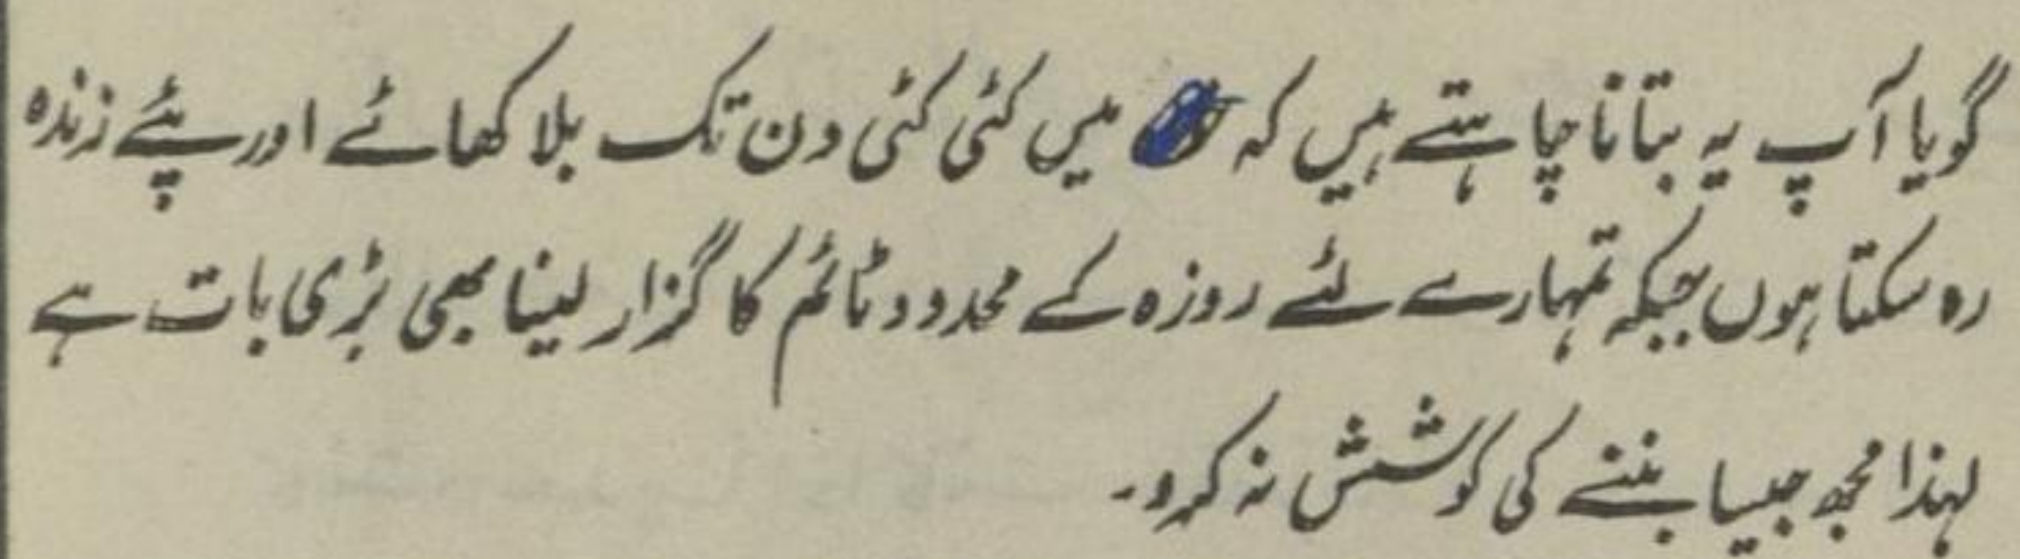 گویا آپ یہ بتانا چاہتے ہیں کہ میں کئی کئی دن تک بلا کھائے اور پئے زندہ
رہ سکتا ہوں جبکہ تمہارے لئے روزہ کے محدود ٹائم کا گزار لینا بھی بڑی بات ہے
لہذا مجھ جیسا بننے کی کوشش نہ کرو۔